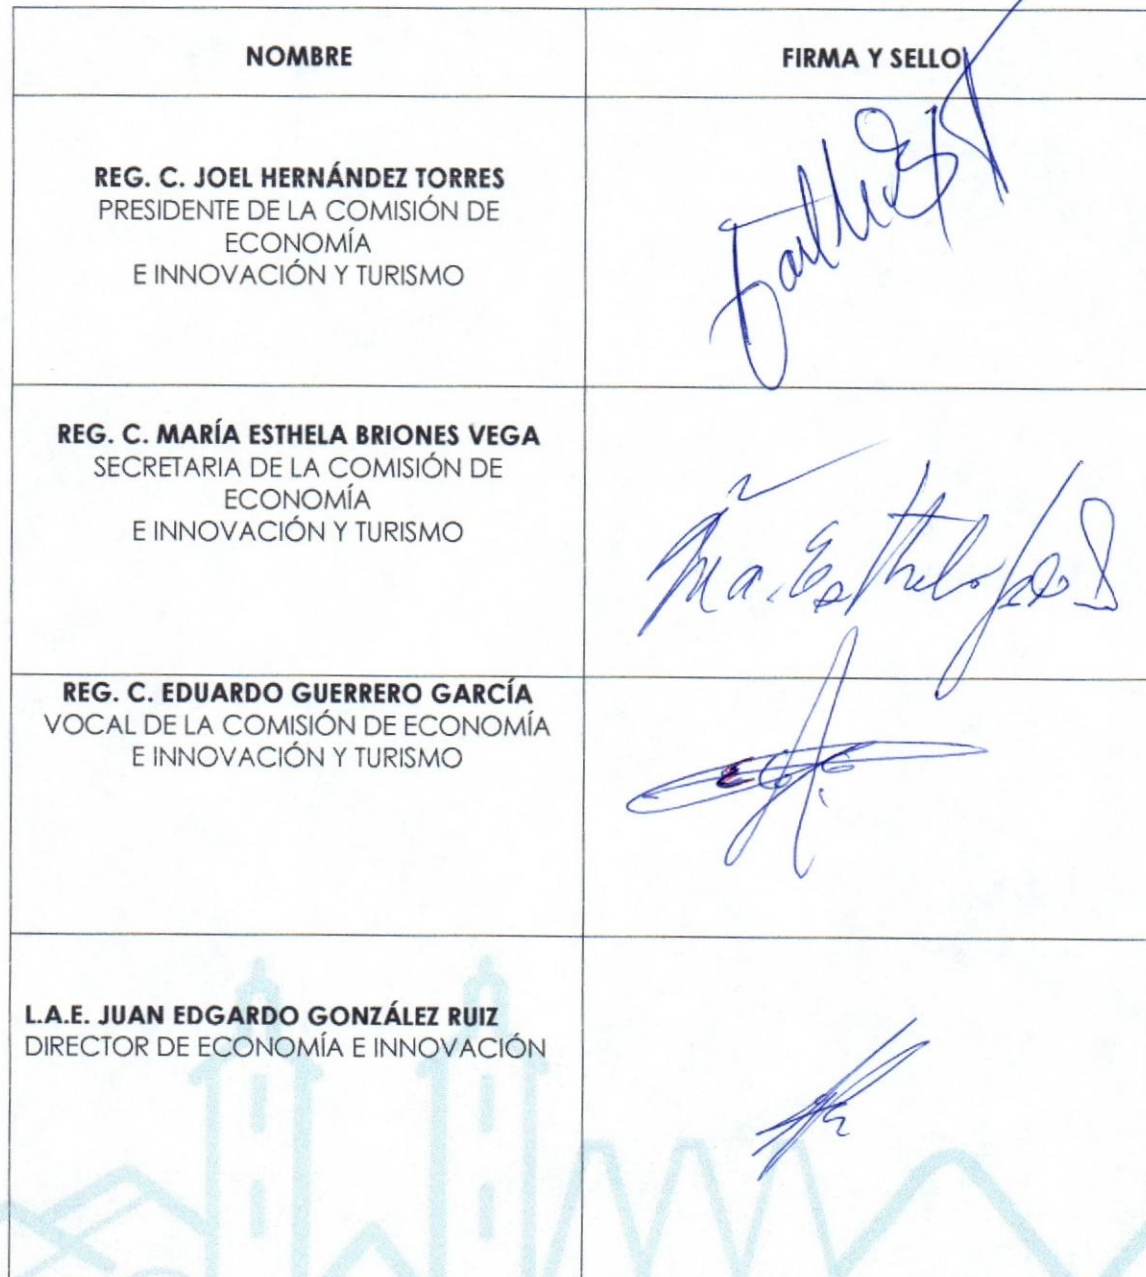 NOMBRE
FIRMA Y SELLO
REG. C. JOEL HERNÁNDEZ TORRES
PRESIDENTE DE LA COMISIÓN DE
ECONOMÍA
E INNOVACIÓN Y TURISMO
REG. C. MARÍA ESTHELA BRIONES VEGA
SECRETARIA DE LA COMISIÓN DE
ECONOMÍA
E INNOVACIÓN Y TURISMO
Ma. Esthela
REG. C. EDUARDO GUERRERO GARCÍA
VOCAL DE LA COMISIÓN DE ECONOMÍA
E INNOVACIÓN Y TURISMO
L.A.E. JUAN EDGARDO GONZÁLEZ RUIZ
DIRECTOR DE ECONOMÍA E INNOVACIÓN